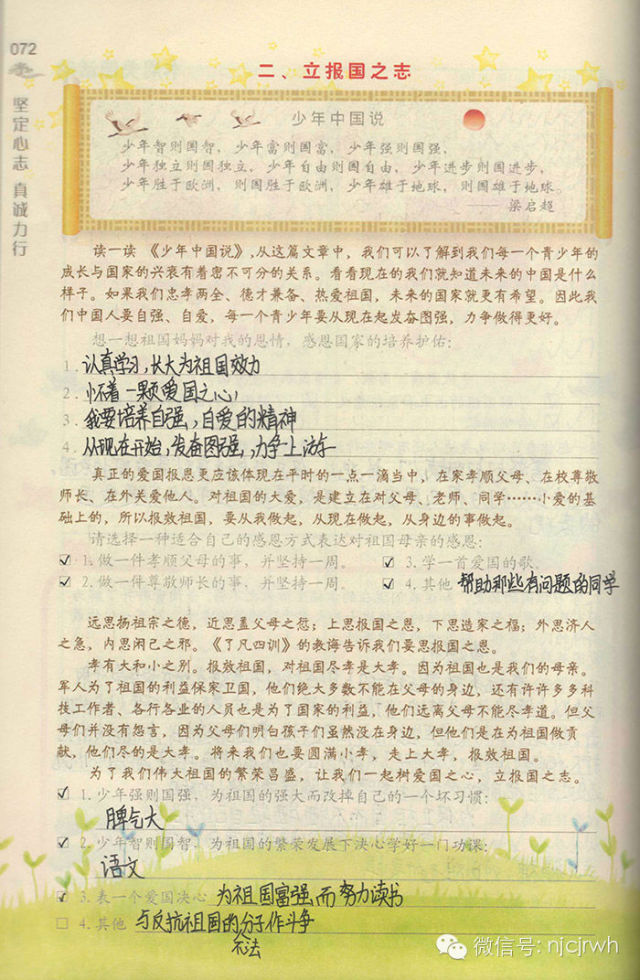 072
坚定心志 真诚力行
二、立报国之志
少年中国说
少年智则国智，少年富则国富，少年强则国强，
少年独立则国独立，少年自由则国自由，少年进步则国进步，
少年胜于欧洲，则国胜于欧洲，少年雄于地球，则国雄于地球。
——梁启超
读一读《少年中国说》,从这篇文章中，我们可以了解到我们每一个青少年的
成长与国家的兴衰有着密不可分的关系。看看现在的我们就知道未来的中国是什么
样子。如果我们忠孝两全、德才兼备、热爱祖国，未来的国家就更有希望。因此我
们中国人要自强、自爱，每一个青少年要从现在起发奋图强，力争做得更好。
想一想祖国妈妈对我的恩情，感恩国家的培养护佑：
1. 认真学习，长大为祖国效力
2. 怀着一颗爱国之心，
3. 我要培养自强，自爱的精神
4. 从现在开始，发奋图强，力争上游
真正的爱国报恩更应该体现在平时的一点一滴当中，在家孝顺父母、在校尊敬
师长、在外关爱他人。对祖国的大爱，是建立在对父母、老师、同学……小爱的基
础上的，所以报效祖国，要从我做起，从现在做起，从身边的事做起。
请选择一种适合自己的感恩方式表达对祖国母亲的感恩：
☑ 1. 做一件孝顺父母的事，并坚持一周。 ☑ 3. 学一首爱国的歌。
☑ 2. 做一件尊敬师长的事，并坚持一周。 ☑ 4. 其他 帮助那些有问题的同学
远思扬祖宗之德，近思盖父母之愆；上思报国之恩，下思造家之福；外思济人
之急，内思闲己之邪。《了凡四训》的教诲告诉我们要思报国之恩。
孝有大和小之别。报效祖国，对祖国尽孝是大孝。因为祖国也是我们的母亲。
军人为了祖国的利益保家卫国，他们绝大多数不能在父母的身边，还有许许多多科
技工作者、各行各业的人员也是为了国家的利益，他们远离父母不能尽孝道。但父
母们并没有怨言，因为父母们明白孩子们虽然没在身边，但他们是在为祖国做贡
献，他们尽的是大孝。将来我们也要圆满小孝，走上大孝，报效祖国。
为了我们伟大祖国的繁荣昌盛，让我们一起树爱国之心，立报国之志。
☑ 1. 少年强则国强，为祖国的强大而改掉自己的一个坏习惯：
脾气大
☑ 2. 少年智则国智，为祖国的繁荣发展下决心学好一门功课：
语文
☑ 3. 表一个爱国决心 为祖国富强而努力读书
☐ 4. 其他 与反抗祖国的分子作斗争
不法
微信号: njcjrwh